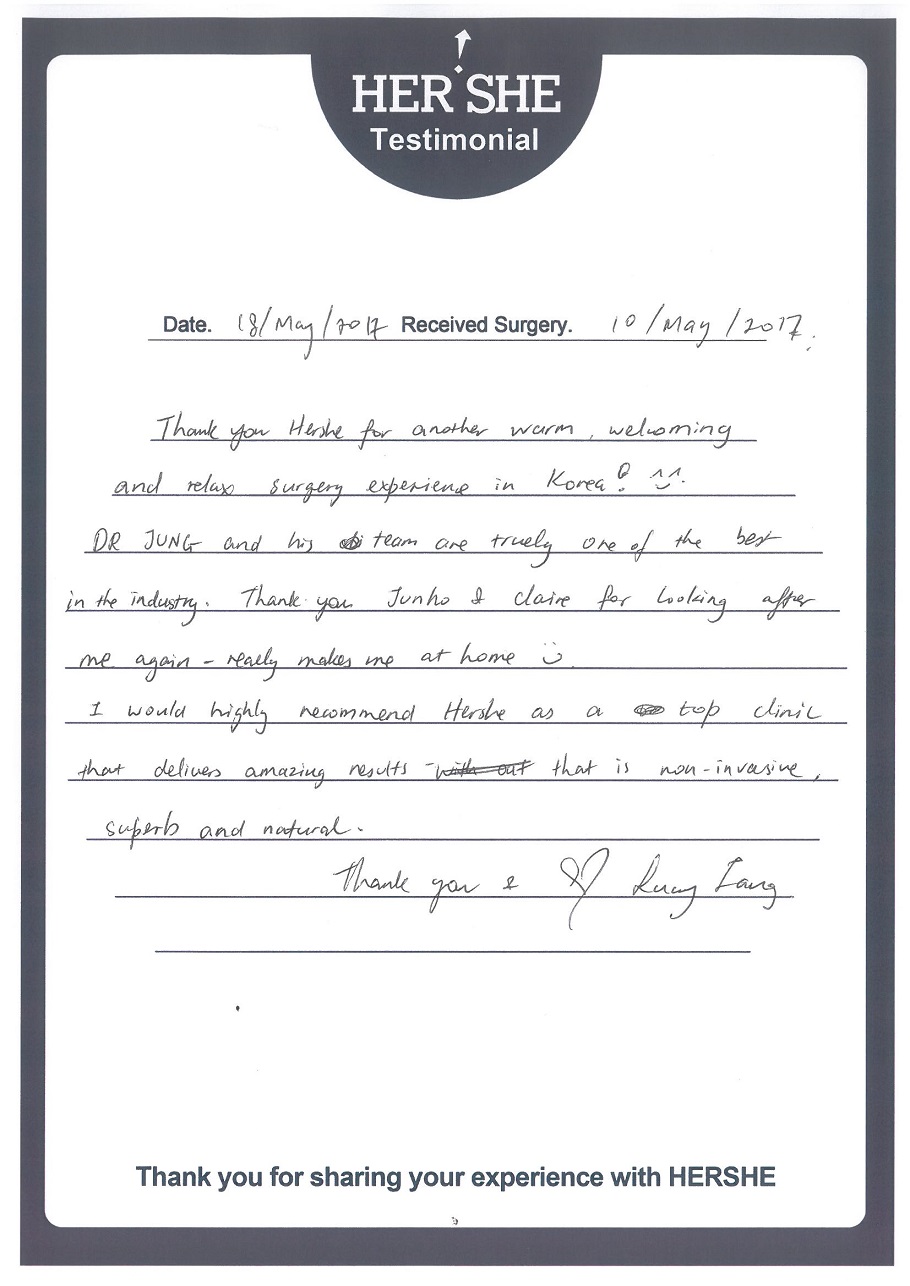 HER SHE
Testimonial
Date. 18/May/2017 Received Surgery. 10/May/2017.
Thank you Hershe for another warm, welcoming
and relax surgery experience in Korea! ^^.
DR JUNG and his team are truely one of the best
in the industry. Thank you Junho & Claire for looking after
me again - really makes me at home :)
I would highly recommend Hershe as a top clinic
that delivers amazing results with out that is non-invasive,
superb and natural.
Thank you & ♡
Thank you for sharing your experience with HERSHE